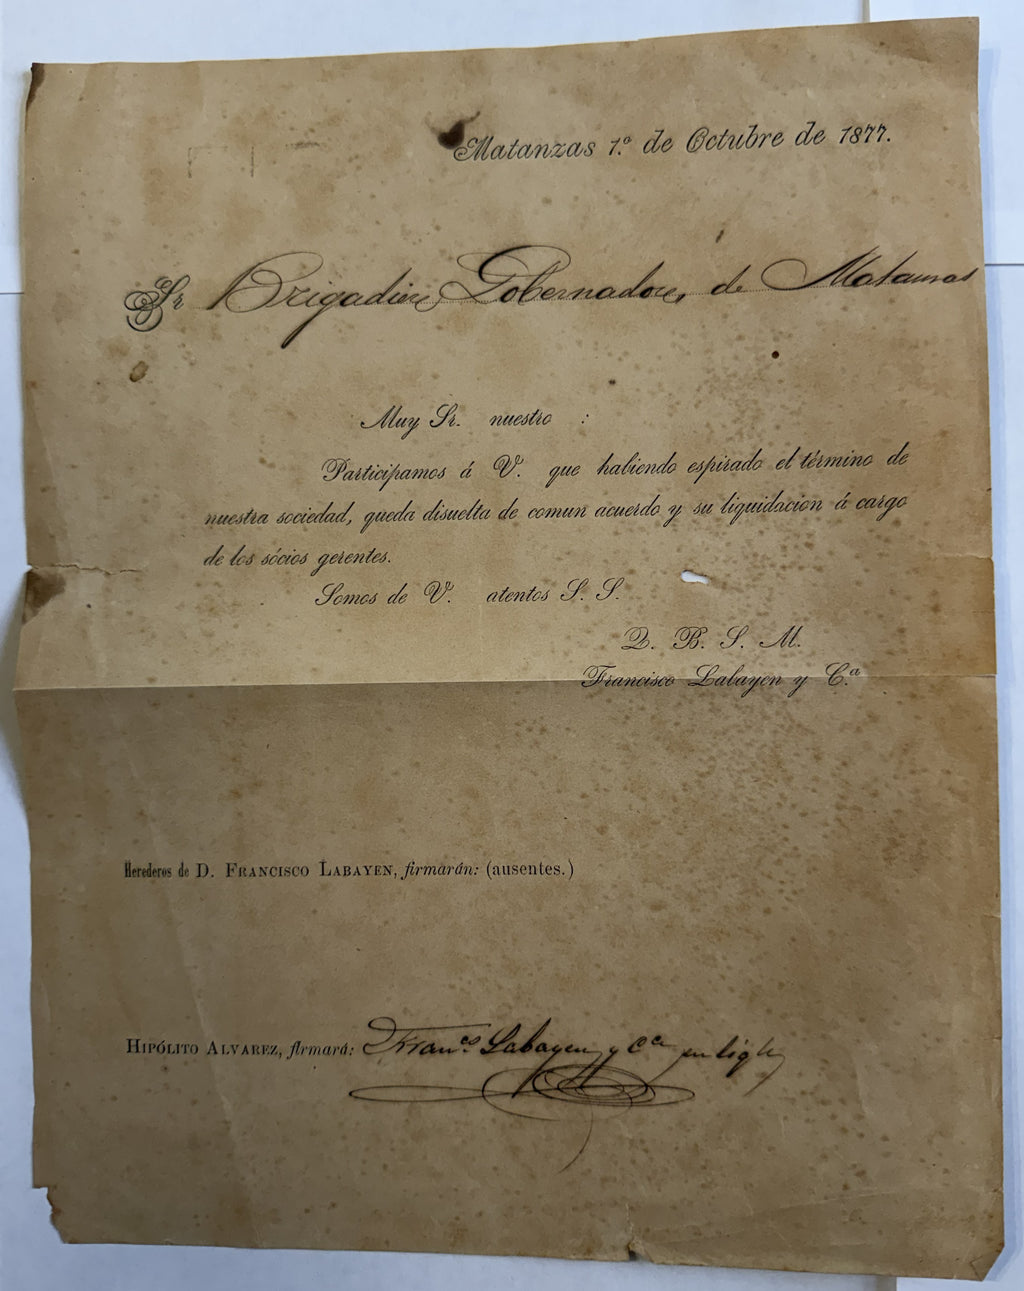 Matanzas 1.º de Octubre de 1877.
Sr Brigadier Gobernador de Matanzas
Muy Sr. nuestro :
Participamos á V. que habiendo espirado el término de
nuestra sociedad, queda disuelta de comun acuerdo y su liquidacion á cargo
de los sócios gerentes.
Somos de V. atentos S. S.
Q. B. S. M.
Francisco Labayen y C.ª
Herederos de D. FRANCISCO LABAYEN, firmarán: (ausentes.)
HIPÓLITO ALVAREZ, firmará: Fran.co Labayen y Ca en liqn